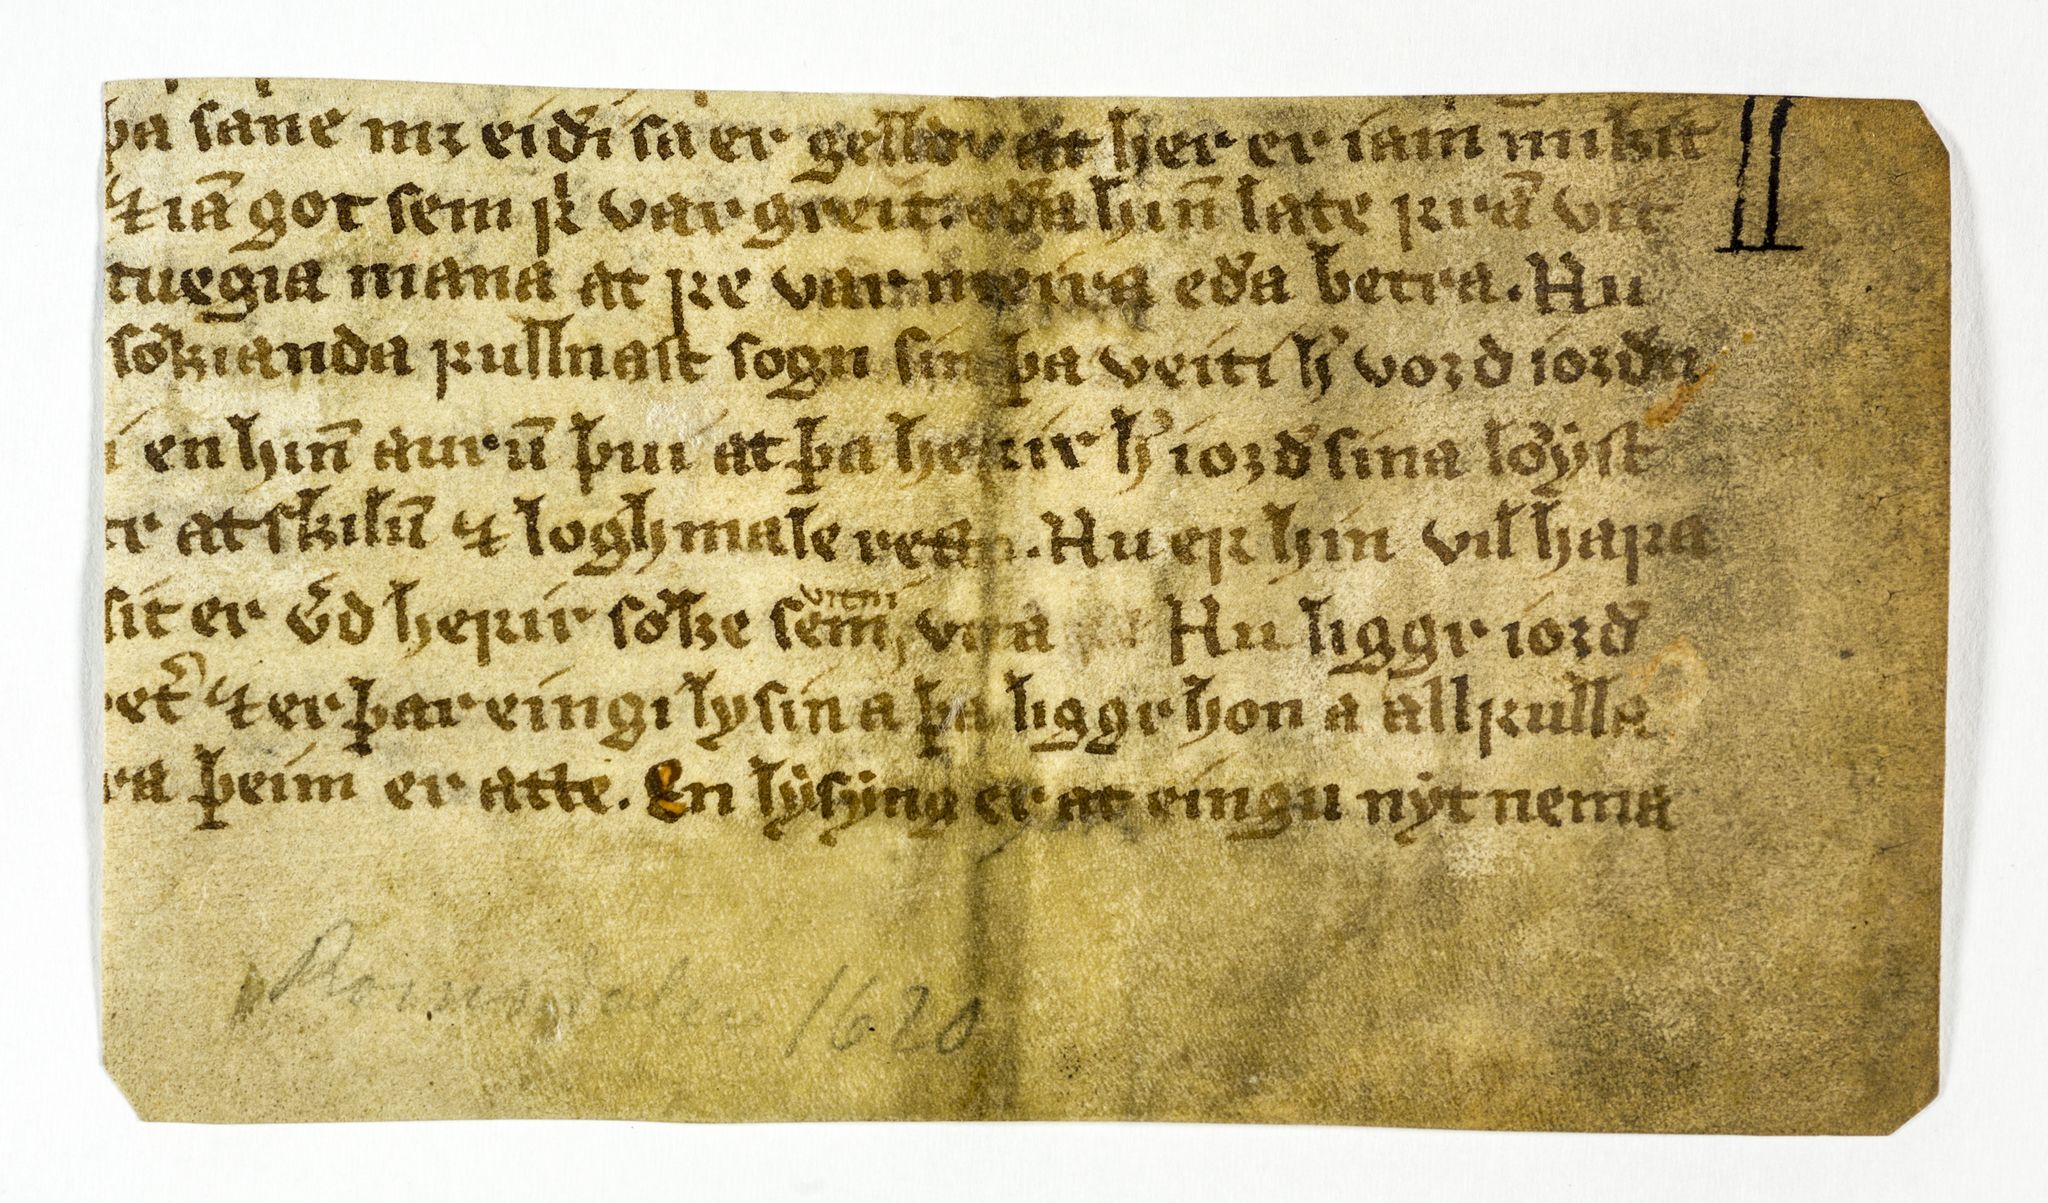 þa sãne mꝫ eidi sa er gelldr at her er iam mikit
⁊ iã got sem ꝼͤ var greit. eða hiñ late ꝼrã vit
tuegia mana at ꝼe var meira eða betra. Nu
sökianda ꝼullnast sogn sin þa veiti hͥ vorꝺ iorðu
i en hiñ aurũ þui at þa heꝼir hͥ iorð sina löyst
er at skilũ ⁊ loghmale rean. Nu eꝼ hin vil haꝼa
sit er heꝼir söke sem vitni vita Nu liggr iorð
⁊ er þar eingi lysin a þa liggr hon a allꝼulla
ra þeim er atte. En lýsýng er at eingu nýt nema
Romsdalen 1620